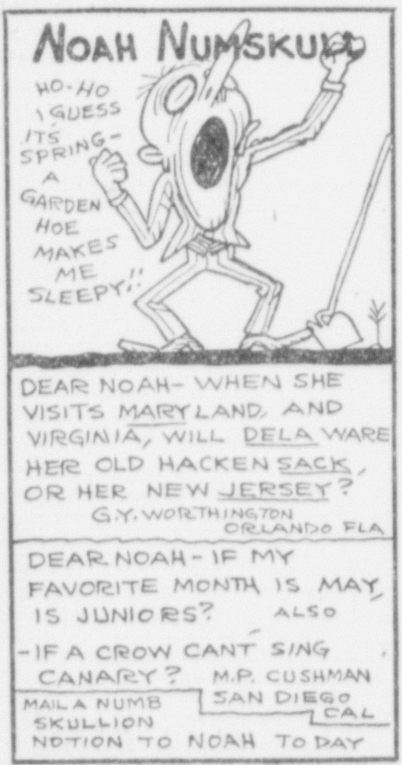 NOAH NUMSKULL
HO-HO
I GUESS
ITS
SPRING-
A
GARDEN
HOE
MAKES
ME
SLEEPY!!
DEAR NOAH- WHEN SHE
VISITS MARYLAND, AND
VIRGINIA, WILL DELA WARE
HER OLD HACKEN SACK,
OR HER NEW JERSEY?
G.Y. WORTHINGTON
ORLANDO FLA
DEAR NOAH- IF MY
FAVORITE MONTH IS MAY,
IS JUNIORS? ALSO
-IF A CROW CANT SING
CANARY? M.P. CUSHMAN
SAN DIEGO
CAL
MAIL A NUMB
SKULLION
NOTION TO NOAH TODAY